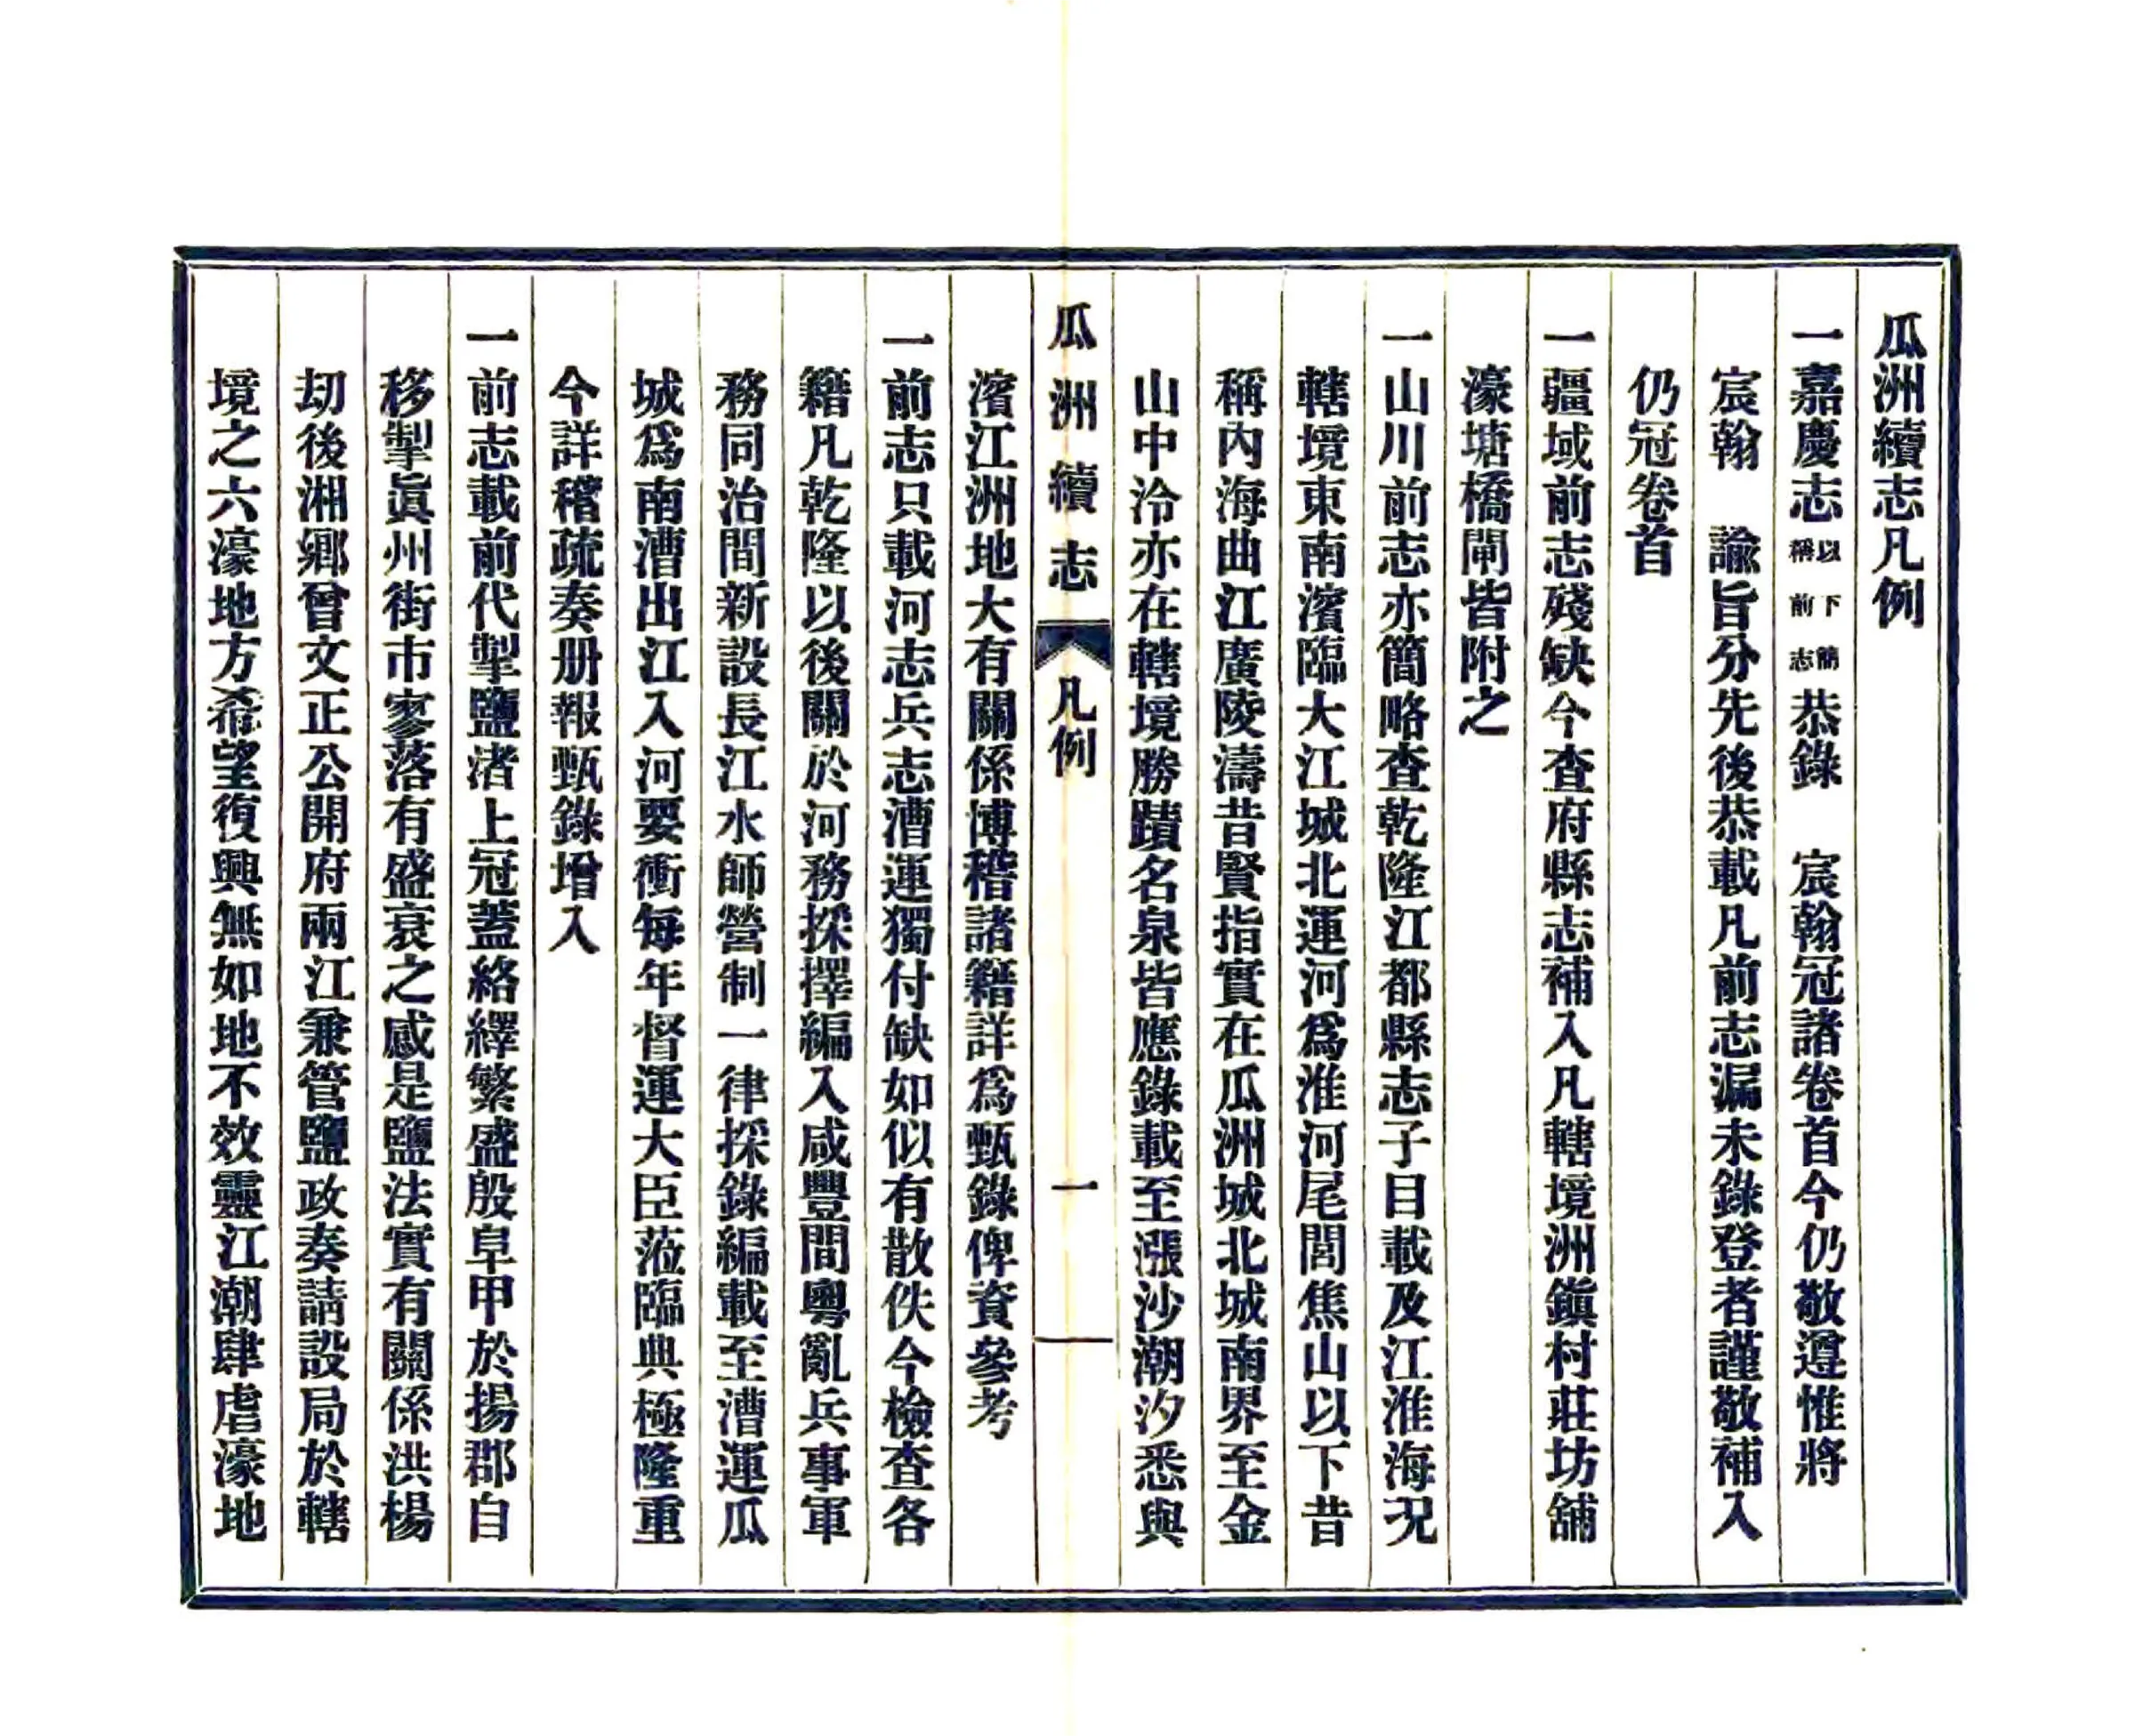 瓜洲續志凡例
一嘉慶志以下簡稱前志恭錄　宸翰冠諸卷首今仍敬遵惟將
宸翰　諭旨分先後恭載凡前志漏未錄登者謹敬補入
仍冠卷首
一疆域前志殘缺今查府縣志補入凡轄境洲鎭村莊坊舖
濠塘橋閘皆附之
一山川前志亦簡略查乾隆江都縣志子目載及江淮海況
轄境東南濱臨大江城北運河爲淮河尾閭焦山以下昔
稱內海曲江廣陵濤昔賢指實在瓜洲城北城南界至金
山中泠亦在轄境勝蹟名泉皆應錄載至漲沙潮汐悉與
瓜洲續志　凡例　一
濱江洲地大有關係博稽諸籍詳爲甄錄俾資參考
一前志只載河志兵志漕運獨付缺如似有散佚今檢查各
籍凡乾隆以後關於河務採擇編入咸豐間粵亂兵事軍
務同治間新設長江水師營制一律採錄編載至漕運瓜
城爲南漕出江入河要衝每年督運大臣蒞臨典極隆重
今詳稽疏奏册報甄錄增入
一前志載前代掣鹽渚上冠蓋絡繹繁盛殷阜甲於揚郡自
移掣眞州街市寥落有盛衰之感是鹽法實有關係洪楊
刧後湘鄉曾文正公開府兩江兼管鹽政奏請設局於轄
境之六濠地方希望復興無如地不效靈江潮肆虐濠地